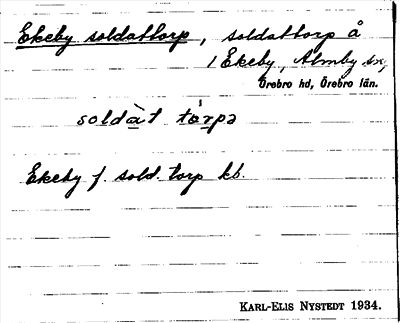 Ekeby soldattorp, soldattorp å
1 Ekeby, Almby sn,
Örebro hd, Örebro län.
soldàt tórpə
Ekeby f. sold. torp kb.
KARL-ELIS NYSTEDT 1934.